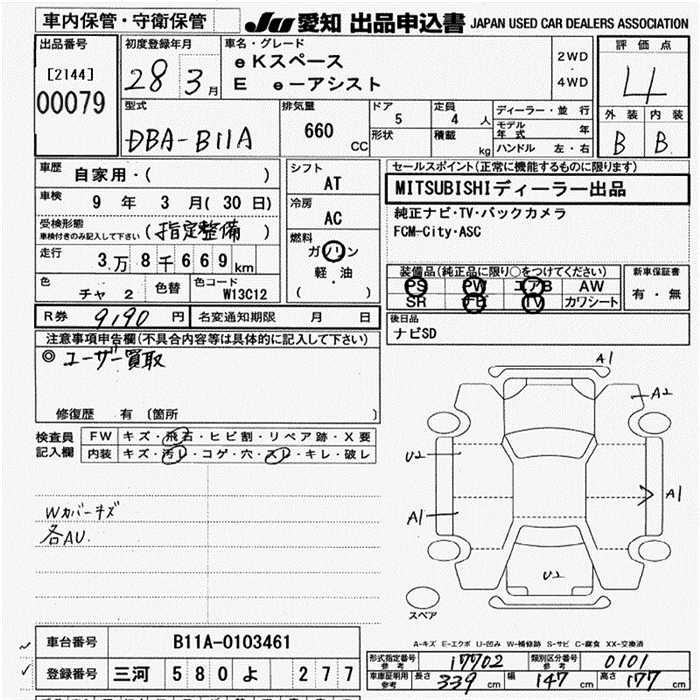 車内保管・守衛保管
JU 愛知 出品申込書 JAPAN USED CAR DEALERS ASSOCIATION
出品番号
[2144]
00079
初度登録年月
28 3月
車名・グレード
eKスペース
E e-アシスト
2WD
・
4WD
評価点
4
外装 内装
B B
型式
DBA-B11A
排気量
660
CC
ドア
5
形状
定員
4 人
積載
kg
ディーラー・並行
モデル年式 年
ハンドル 左・右
車歴
自家用・( )
車検
9 年 3 月(30 日)
受検形態
車検付きのみ記入して下さい
(指定整備)
走行
3万8千669km
色
チャ 2
色替
色コード
W13C12
シフト
AT
冷房
AC
燃料
ガソリン
軽・油
( )
セールスポイント(正常に機能するものに限ります)
MITSUBISHIディーラー出品
純正ナビ・TV・バックカメラ
FCM-City・ASC
装備品(純正品に限り○をつけてください)
PS PW エアB AW
SR TV カワシート
新車保証書
有・無
R券 9190 円
名変通知期限 月 日
後日品
ナビSD
注意事項申告欄(不具合内容等は具体的に記入して下さい)
◎ ユーザー買取
修復歴 有 〔箇所 〕
検査員
記入欄
FW キズ・飛石・ヒビ割・リペア跡・X要
内装 キズ・汚レ・コゲ・穴・スレ・キレ・破レ
Wカバーキズ
各AU.
A1
A2
U2
A1
A1
U2
スペア
A-キズ E-エクボ U-凹み W-補修跡 S-サビ C-腐食 XX-交換済
車台番号 B11A-0103461
登録番号 三河 580 よ 277
形式指定番号
参考
17702
類別区分番号
参考
0101
車庫証明用
参考
長さ 339 cm 幅 147 cm 高さ 177 cm